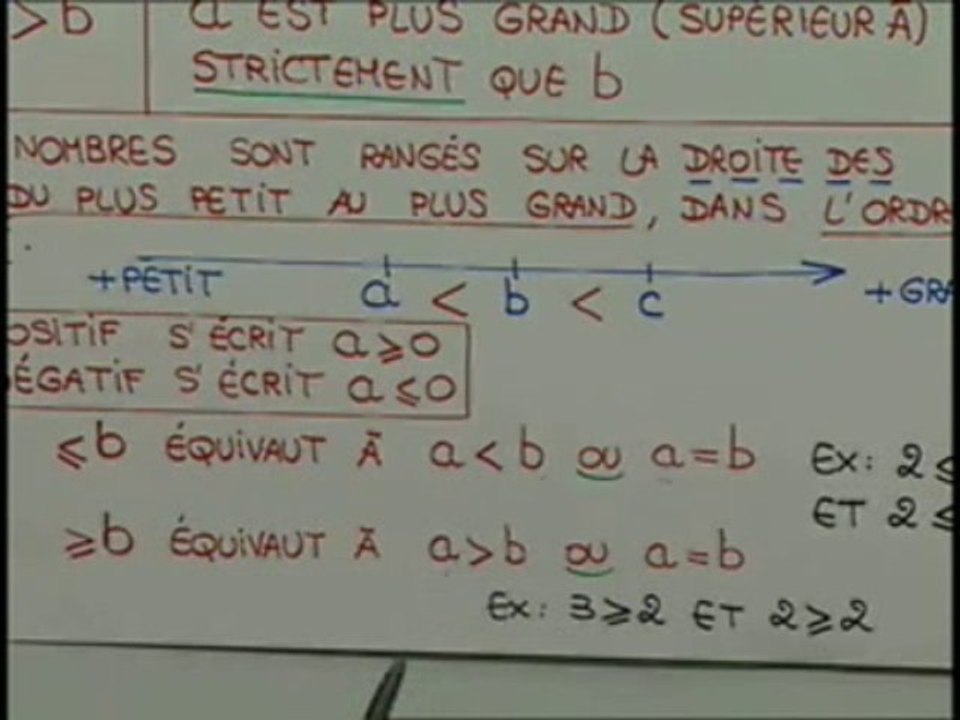 >b a EST PLUS GRAND (SUPÉRIEUR À)
STRICTEMENT QUE b
NOMBRES SONT RANGÉS SUR LA DROITE DES
DU PLUS PETIT AU PLUS GRAND, DANS L'ORDR
+PETIT a < b < c +GRA
OSITIF S'ÉCRIT a⩾0
ÉGATIF S'ÉCRIT a⩽0
⩽b ÉQUIVAUT À a<b ou a=b EX: 2⩽
ET 2⩽
⩾b ÉQUIVAUT À a>b ou a=b
EX: 3⩾2 ET 2⩾2